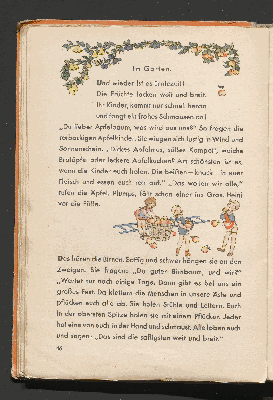 Im Garten.
Und wieder ist es Erntezeit!
Die Früchte locken weit und breit.
Ihr Kinder, kommt nur schnell heran
und fangt ein frohes Schmausen an!
„Du lieber Apfelbaum, was wird aus uns?“ So fragen die
rotbackigen Apfelkinder. Sie wiegen sich lustig in Wind und
Sonnenschein. „Dickes Apfelmus, süßes Kompott, weiche
Bratäpfel oder leckere Apfelkuchen? Am schönsten ist es,
wenn die Kinder euch holen. Die beißen knack in euer
Fleisch und essen euch roh auf.“ „Das wollen wir alle,“
rufen die Äpfel. Plumps, fällt schon einer ins Gras, Heni
vor die Füße.
Das hören die Birnen. Saftig und schwer hängen sie an den
Zweigen. Sie fragen: „Du guter Birnbaum, und wir?“
„Wartet nur noch einige Tage. Dann gibt es bei uns ein
großes Fest. Da klettern die Menschen in unsere Äste und
pflücken euch alle ab. Sie holen Stühle und Leitern. Euch
in der obersten Spitze holen sie mit einem Pflücker. Jeder
hat eine von euch in der Hand und schmaust. Alle loben euch
und sagen: „Das sind die saftigsten weit und breit.“
46